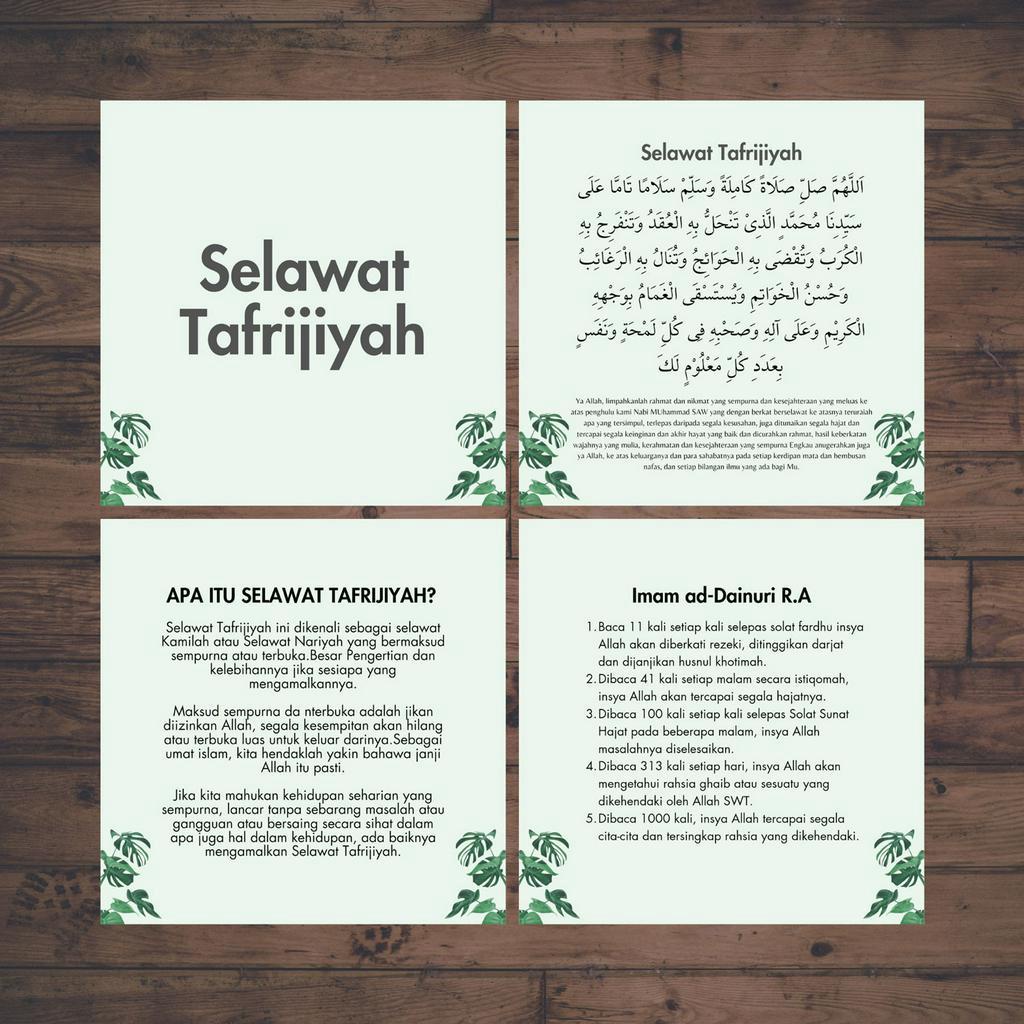 Selawat
Tafrijiyah
Selawat Tafrijiyah
اَللّٰهُمَّ صَلِّ صَلَاةً كَامِلَةً وَسَلِّمْ سَلَامًا تَامًّا عَلَى
سَيِّدِنَا مُحَمَّدٍ الَّذِىْ تَنْحَلُّ بِهِ الْعُقَدُ وَتَنْفَرِجُ بِهِ
الْكُرَبُ وَتُقْضَى بِهِ الْحَوَائِجُ وَتُنَالُ بِهِ الْرَغَائِبُ
وَحُسْنُ الْخَوَاتِمِ وَيُسْتَسْقَى الْغَمَامُ بِوَجْهِهِ
الْكَرِيْمِ وَعَلَى آلِهِ وَصَحْبِهِ فِى كُلِّ لَمْحَةٍ وَنَفَسٍ
بِعَدَدِ كُلِّ مَعْلُوْمٍ لَكَ
Ya Allah, limpahkanlah rahmat dan nikmat yang sempurna dan kesejahteraan yang meluas ke
atas penghulu kami Nabi MUhammad SAW yang dengan berkat berselawat ke atasnya teruraiah
apa yang tersimpul, terlepas daripada segala kesusahan, juga ditunaikan segala hajat dan
tercapai segala keinginan dan akhir hayat yang baik dan dicurahkan rahmat, hasil keberkatan
wajahnya yang mulia, kerahmatan dan kesejahteraan yang sempurna Engkau anugerahkan juga
ya Allah, ke atas keluarganya dan para sahabatnya pada setiap kerdipan mata dan hembusan
nafas, dan setiap bilangan ilmu yang ada bagi Mu.
APA ITU SELAWAT TAFRIJIYAH?
Selawat Tafrijiyah ini dikenali sebagai selawat
Kamilah atau Selawat Nariyah yang bermaksud
sempurna atau terbuka.Besar Pengertian dan
kelebihannya jika sesiapa yang
mengamalkannya.
Maksud sempurna da nterbuka adalah jikan
diizinkan Allah, segala kesempitan akan hilang
atau terbuka luas untuk keluar darinya.Sebagai
umat islam, kita hendaklah yakin bahawa janji
Allah itu pasti.
Jika kita mahukan kehidupan seharian yang
sempurna, lancar tanpa sebarang masalah atau
gangguan atau bersaing secara sihat dalam
apa juga hal dalam kehidupan, ada baiknya
mengamalkan Selawat Tafrijiyah.
Imam ad-Dainuri R.A
1.Baca 11 kali setiap kali selepas solat fardhu insya
Allah akan diberkati rezeki, ditinggikan darjat
dan dijanjikan husnul khotimah.
2.Dibaca 41 kali setiap malam secara istiqomah,
insya Allah akan tercapai segala hajatnya.
3.Dibaca 100 kali setiap kali selepas Solat Sunat
Hajat pada beberapa malam, insya Allah
masalahnya diselesaikan.
4.Dibaca 313 kali setiap hari, insya Allah akan
mengetahui rahsia ghaib atau sesuatu yang
dikehendaki oleh Allah SWT.
5.Dibaca 1000 kali, insya Allah tercapai segala
cita-cita dan tersingkap rahsia yang dikehendaki.